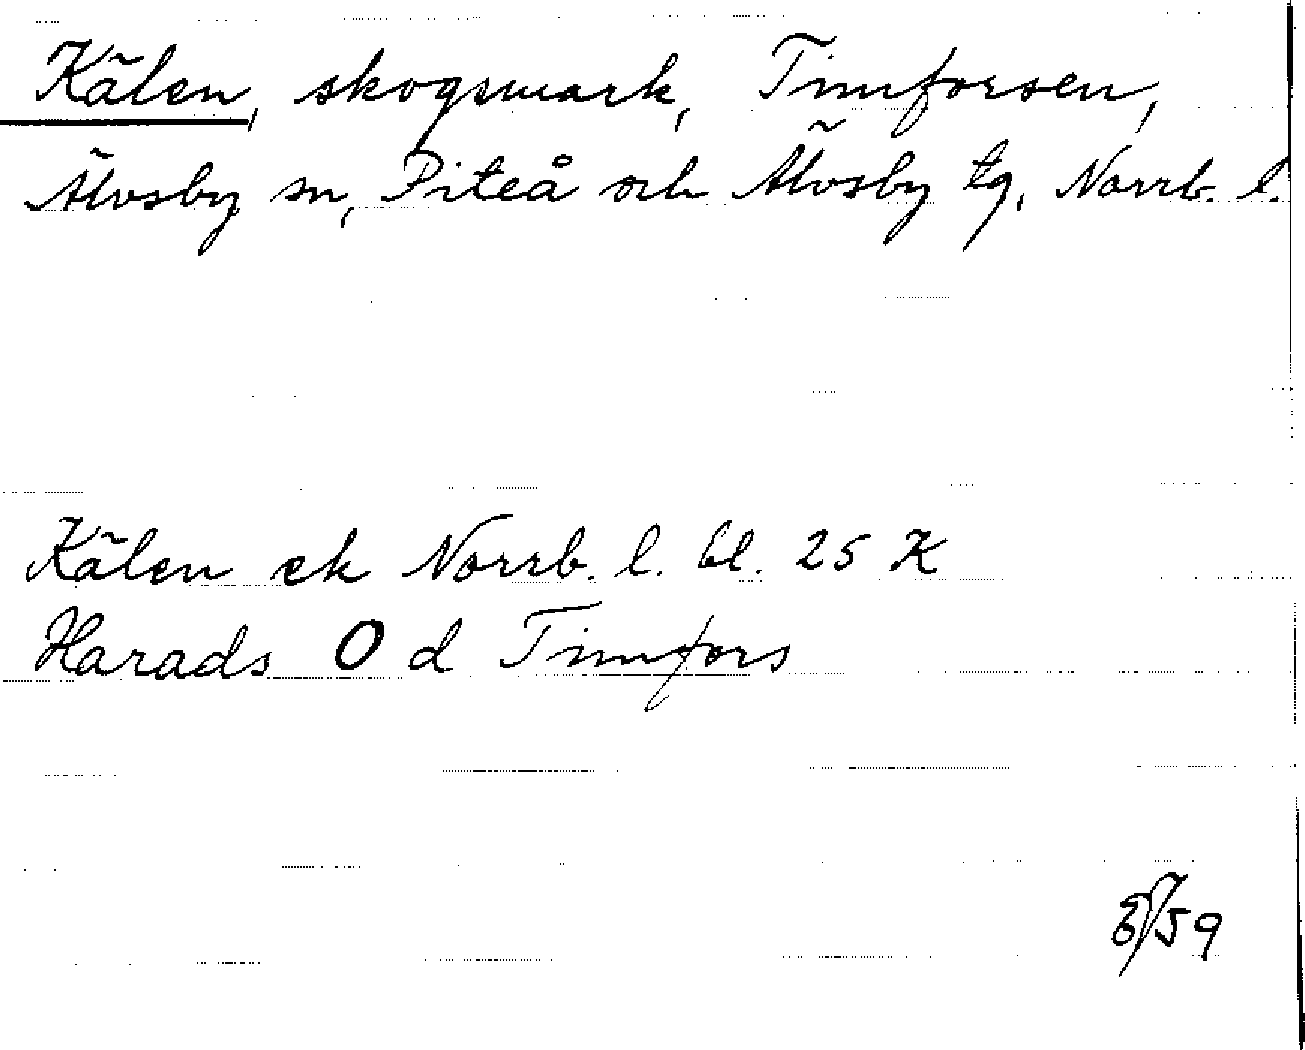 Kälen, skogsmark, Timforsen,
Älvsby sn, Piteå och Älvsby tg, Norrb. l.
Kälen ek Norrb. l. bl. 25 K
Harads O d Timfors